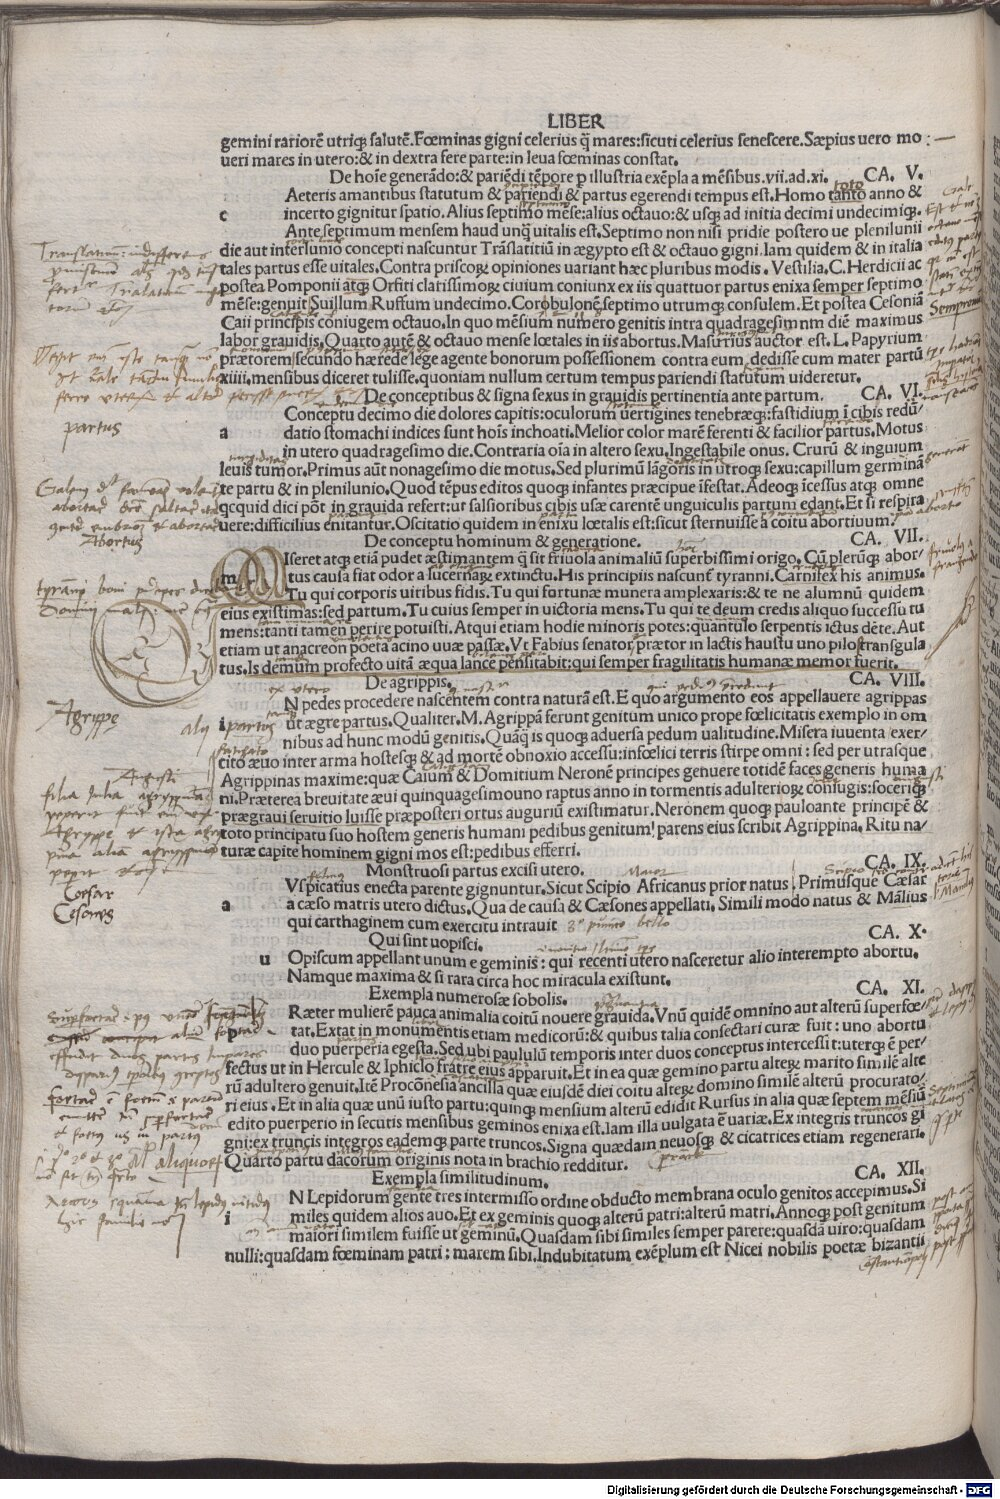 LIBER
gemini rariorē utriq; salutē. Fœminas gigni celerius q̄ mares: sicuti celerius senescere. Sæpius uero mo
ueri mares in utero: & in dextra fere parte: in leua fœminas constat.
De hoīe generādo: & pariēdi tēpore p illustria exēpla a mēsibus .vii. ad .xi. CA. V.
Aeteris amantibus statutum & pariendi & partus egerendi tempus est. Homo tanto anno &
c incerto gignitur spatio. Alius septimo mēse: alius octauo: & usq; ad initia decimi undecimiq;.
Ante septimum mensem haud unq̄ uitalis est. Septimo non nisi pridie postero ue plenilunii
die aut interlunio concepti nascuntur Trāslatitiū in ægypto est & octauo gigni. Iam quidem & in italia
tales partus esse uitales. Contra priscoꝝ opiniones uariant hæc pluribus modis. Vestilia. C. Herdicii ac
postea Pomponii atq; Orfiti clarissimoꝝ ciuium coniunx ex iis quattuor partus enixa semper septimo
mēse: genuit Suillum Ruffum undecimo. Corobulonē septimo utrumq; consulem. Et postea Cesoniā
Caii principis coniugem octauo. In quo mēsium numero genitis intra quadragesimntm diē maximus
labor grauidis. Quarto autē & octauo mense lœtales in iis abortus. Masurrius auctor est. L. Papyrium
prætorem secundo hærede lege agente bonorum possessionem contra eum dedisse cum mater partū
xiiii. mensibus diceret tulisse. quoniam nullum certum tempus pariendi statutum uideretur.
De conceptibus & signa sexus in grauidis pertinentia ante partum. CA. VI.
Conceptu decimo die dolores capitis: oculorum uertigines tenebræq;: fastidium ī cibis redū⸗
a datio stomachi indices sunt hoīs inchoati. Melior color marē ferenti & facilior partus. Motus
in utero quadragesimo die. Contraria oīa in altero sexu. Ingestabile onus. Crurū & inguium
leuis tumor. Primus aūt nonagesimo die motus. Sed plurimū lāgoris in utroq; sexu: capillum germinā
te partu & in plenilunio. Quod tēpus editos quoq; infantes præcipue īfestat. Adeoq; īcessus atq; omne
qcquid dici pōt in grauida refert: ut salsioribus cibis usæ carentē unguiculis partum edant. Et si respira
uere: difficilius enitantur. Oscitatio quidem in enixu lœtalis est: sicut sternuisse a coitu abortiuum.
De conceptu hominum & generatione. CA. VII.
Iseret atq; etiā pudet æstimantem q̄ sit friuola animaliū superbissimi origo. Cū plerūq; abor⸗
m tus causa fiat odor a lucernaꝝ extinctu. His principiis nascunt tyranni. Carnifex his animus.
Tu qui corporis uiribus fidis. Tu qui fortunæ munera amplexaris: & te ne alumnū quidem
eius existimas: sed partum. Tu cuius semper in uictoria mens. Tu qui te deum credis aliquo successu tu
mens: tanti tamen perire potuisti. Atqui etiam hodie minoris potes: quantulo serpentis ictus dēte. Aut
etiam ut anacreon poeta acino uuæ passæ. Vt Fabius senator prætor in lactis haustu uno pilo strangula
tus. Is demum profecto uitā æqua lance pensitabit: qui semper fragilitatis humanæ memor fuerit.
De agrippis. CA. VIII.
N pedes procedere nascentem contra naturā est. E quo argumento eos appellauere agrippas
i ut ægre partus. Qualiter. M. Agrippā ferunt genitum unico prope fœlicitatis exemplo in om
nibus ad hunc modū genitis. Quāq̄ is quoq; aduersa pedum ualitudine. Misera iuuenta exer⸗
cito æuo inter arma hostesq; & ad mortē obnoxio accessu: infœlici terris stirpe omni: sed per utrasque
Agrippinas maxime: quæ Caium & Domitium Neronē principes genuere totidē faces generis huma
ni. Præterea breuitate æui quinquagesimouno raptus anno in tormentis adulterioꝝ coniugis: soceriq;
prægraui seruitio luisse præposteri ortus auguriū existimatur. Neronem quoq; pauloante principē &
toto principatu suo hostem generis humani pedibus genitum! parens eius scribit Agrippina. Ritu na⸗
turæ capite hominem gigni mos est: pedibus efferri.
Monstruosi partus excisi utero. CA. IX.
Vspicatius enecta parente gignuntur. Sicut Scipio Africanus prior natus. Primusque Cæsar
a a cæso matris utero dictus. Qua de causa & Cæsones appellati. Simili modo natus & Mālius
qui carthaginem cum exercitu intrauit
Qui sint uopisci. CA. X.
u Opiscum appellant unum e geminis: qui recenti utero nasceretur alio interempto abortu.
Namque maxima & si rara circa hoc miracula existunt.
Exempla numerosæ sobolis. CA. XI.
Ræter mulierē pauca animalia coitū nouere grauida. Vnū quidē omnino aut alterū superfœ⸗
p tat. Extat in monumentis etiam medicorū: & quibus talia consectari curæ fuit: uno abortu
duo puerperia egesta. Sed ubi paululū temporis inter duos conceptus intercessit: uterq; ē per⸗
fectus ut in Hercule & Iphiclo fratre eius apparuit. Et in ea quæ gemino partu alteꝝ marito similē alte
rū adultero genuit. Itē Procōnesia ancilla quæ eiusdē diei coitu alteꝝ domino similē alterū procurato⸗
ri eius. Et in alia quæ unū iusto partu: quinq; mensium alterū edidit Rursus in alia quæ septem mēsiū
edito puerperio in secutis mensibus geminos enixa est. Iam illa uulgata ē uariæ. Ex integris truncos gi
gni: ex truncis integros eademq; parte truncos. Signa quædam neuosq; & cicatrices etiam regenerari.
Quarto partu dacorum originis nota in brachio redditur.
Exempla similitudinum. CA. XII.
N Lepidorum gente tres intermisso ordine obducto membrana oculo genitos accepimus. Si
i miles quidem alios auo. Et ex geminis quoq; alterū patri: alterū matri. Annoq; post genitum
maiori similem fuisse ut geminū. Quasdam sibi similes semper parere: quasdā uiro: quasdam
nulli: quasdam fœminam patri: marem sibi. Indubitatum exēplum est Nicei nobilis poetæ bizantii
partus
Abortus
Agrippe
Cæsar
Cesones
Digitalisierung gefördert durch die Deutsche Forschungsgemeinschaft - DFG